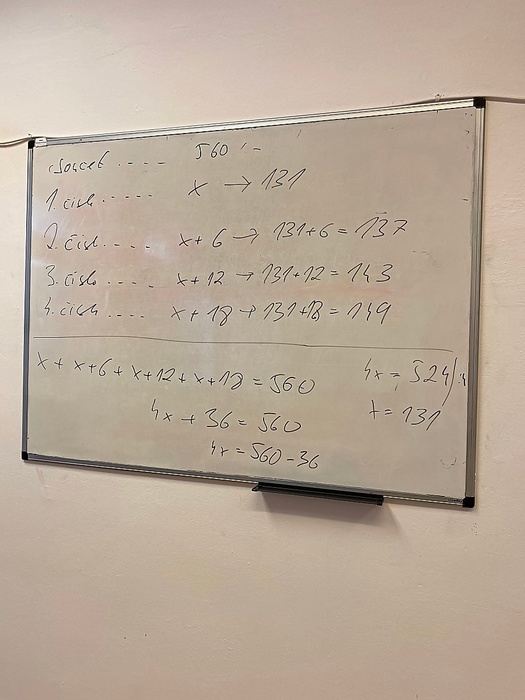 součet .... 560
1. čísl. .... x → 131
2. čísl. .... x + 6 → 131+6 = 137
3. číslo .... x + 12 → 131+12 = 143
4. číslo .... x + 18 → 131+18 = 149
x + x+6 + x+12 + x+18 = 560
4x + 36 = 560
4x = 560 - 36
4x = 524 /:4
x = 131